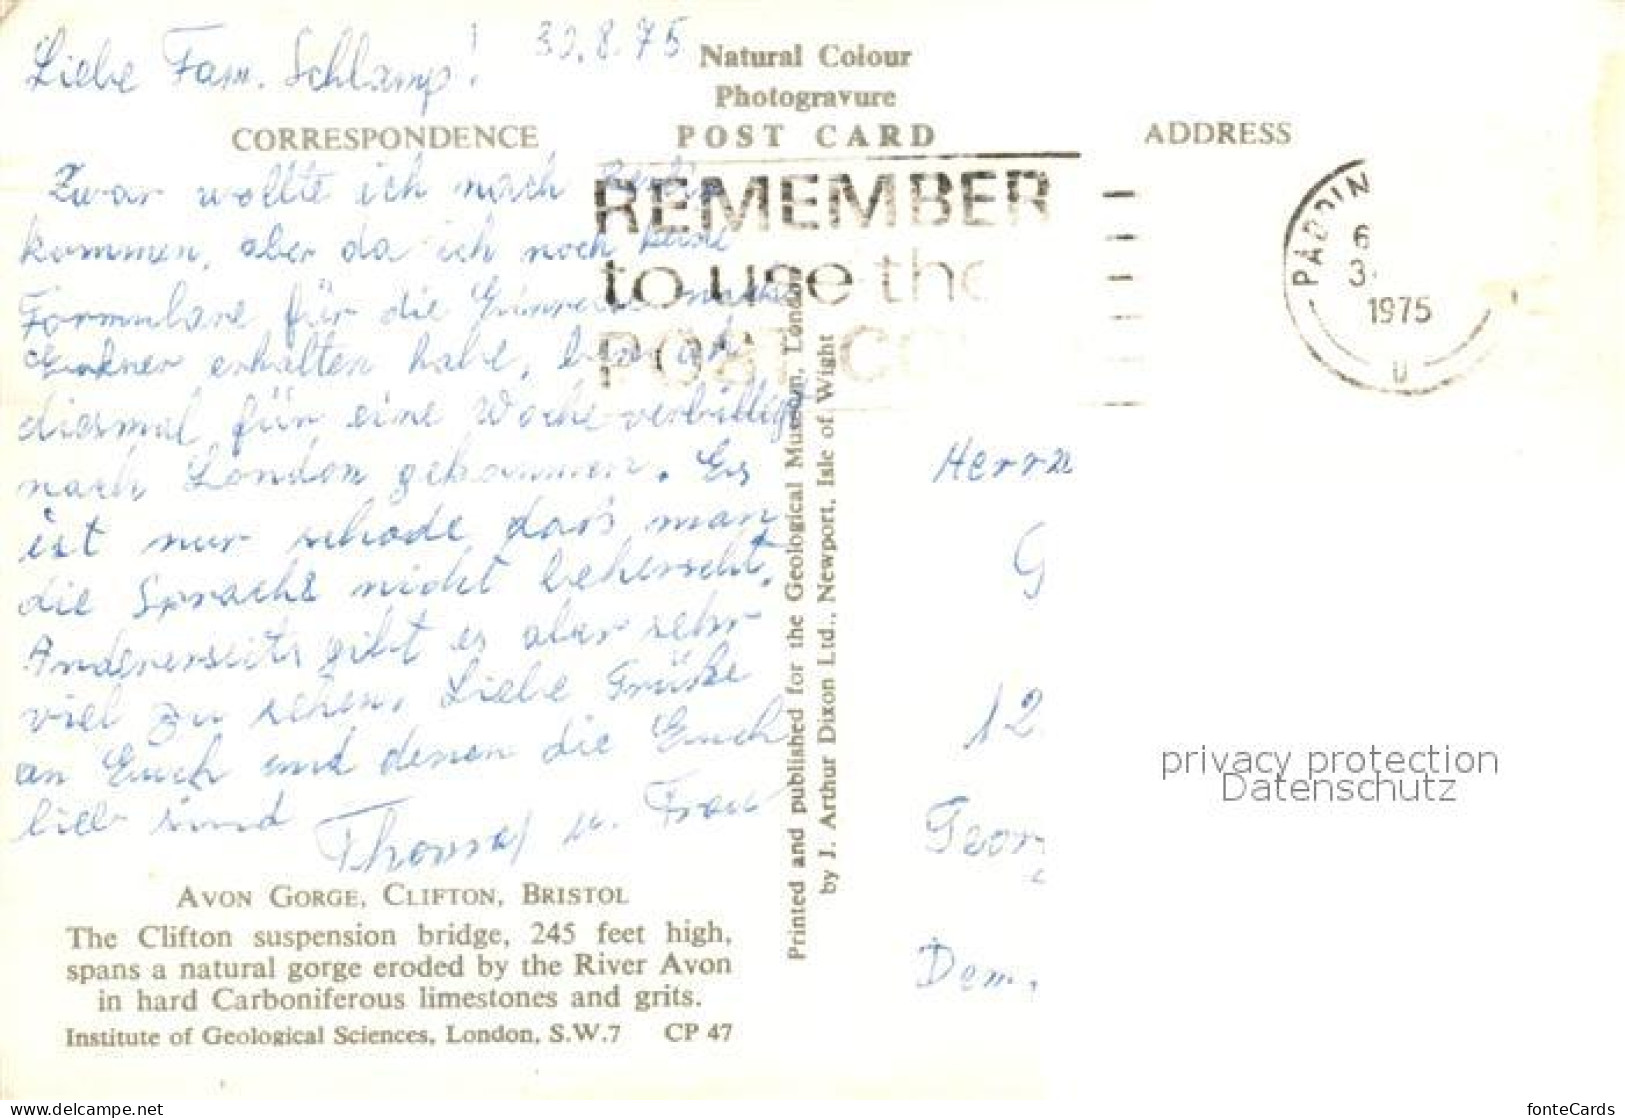 Liebe Fam. Schlamp! 30.8.75
Natural Colour
Photogravure
CORRESPONDENCE
POST CARD
ADDRESS
Zwar wollte ich nach Berlin
kommen, aber da ich noch keine
Formulare für die Einreise nach
Erkner erhalten habe, bin ich
diesmal für eine Woche verbilligt
nach London gekommen. Es
ist nur schade daß man
die Sprache nicht beherscht.
Andererseits gibt es aber sehr
viel zu sehen. Liebe Grüße
an Euch und denen die Euch
lieb sind
Thomas u. Frau
AVON GORGE, CLIFTON, BRISTOL
The Clifton suspension bridge, 245 feet high,
spans a natural gorge eroded by the River Avon
in hard Carboniferous limestones and grits.
Institute of Geological Sciences, London, S.W.7 CP 47
Printed and published for the Geological Museum, London
by J. Arthur Dixon Ltd., Newport, Isle of Wight
REMEMBER
to use the
POST CO
PADDIN
6
3
1975
U
Herrn
G
12
Geor
Dem.
privacy protection
Datenschutz
www.delcampe.net
fonteCards